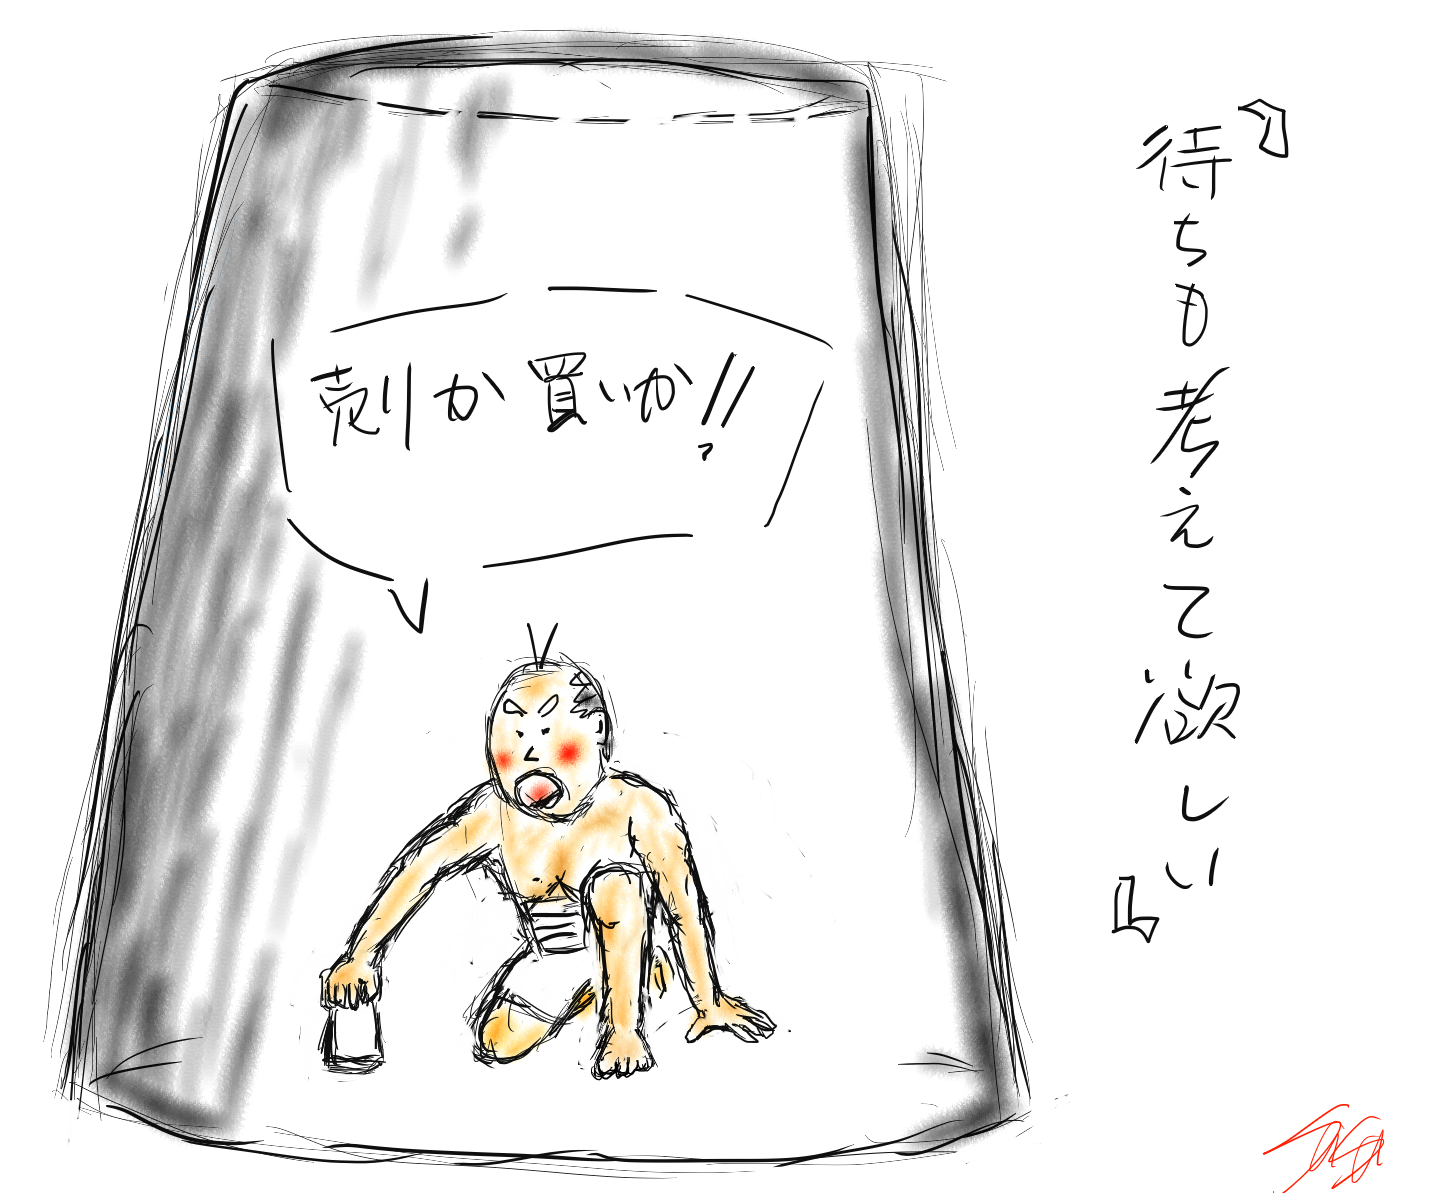 『待ちも考えて欲しい』
売りか買いか!!